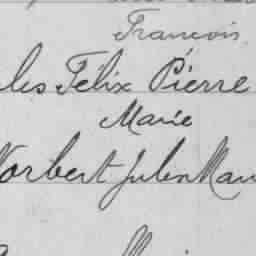 Francois
les Félix Pierre
Marie
Norbert Julien